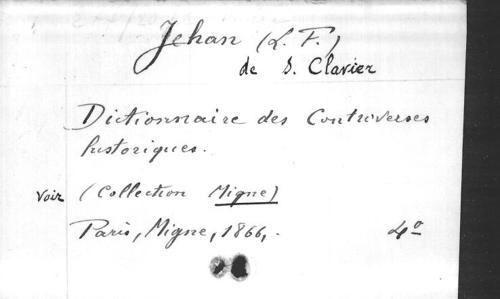 Jehan (L. F.)
de S. Clavier
Dictionnaire des Controverses
historiques.
voir (Collection Migne)
Paris, Migne, 1866, .
4º